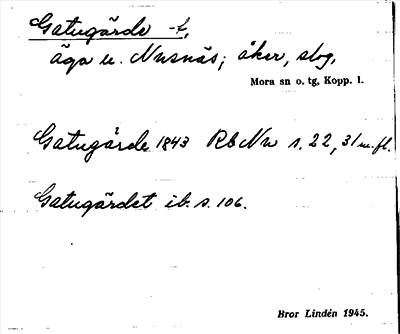 Gatugärde -t,
äga u. Nusnäs; åker, skog,
Mora sn o. tg, Kopp. l.
Gatugärde 1843 RbNu s. 22, 31 m.fl.
Gatugärdet ib. s. 106.
Bror Lindén 1945.